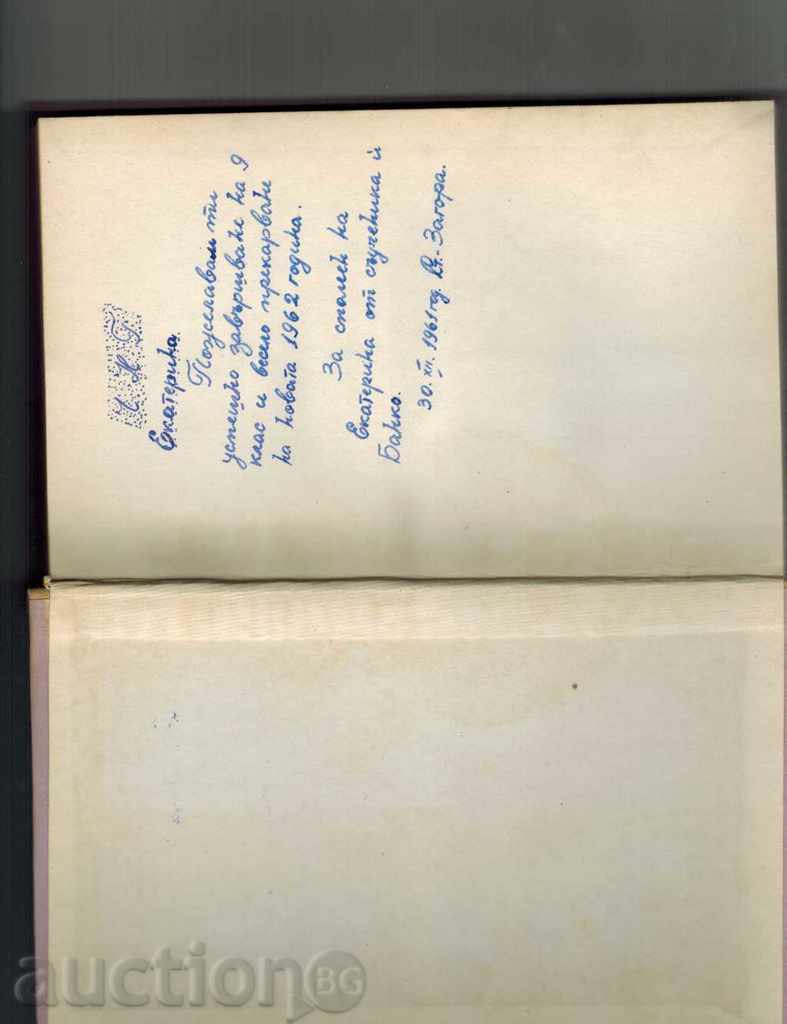 Ч Н Г
Екатерина.
Пожелавам ти
успешно завършване на 9
клас и весело прекарване
на новата 1962 година.
За спомен на
Екатерина от съученика ѝ
Банко.
30. XII. 1961 год. Ст.-Загора.
auctionBG